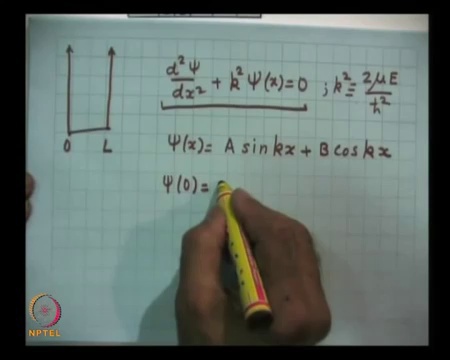 d²Ψ/dx² + k² Ψ(x) = 0 ; k² ≡ 2μE/ħ²
Ψ(x) = A sin kx + B cos kx
0 L
Ψ(0) =
NPTEL